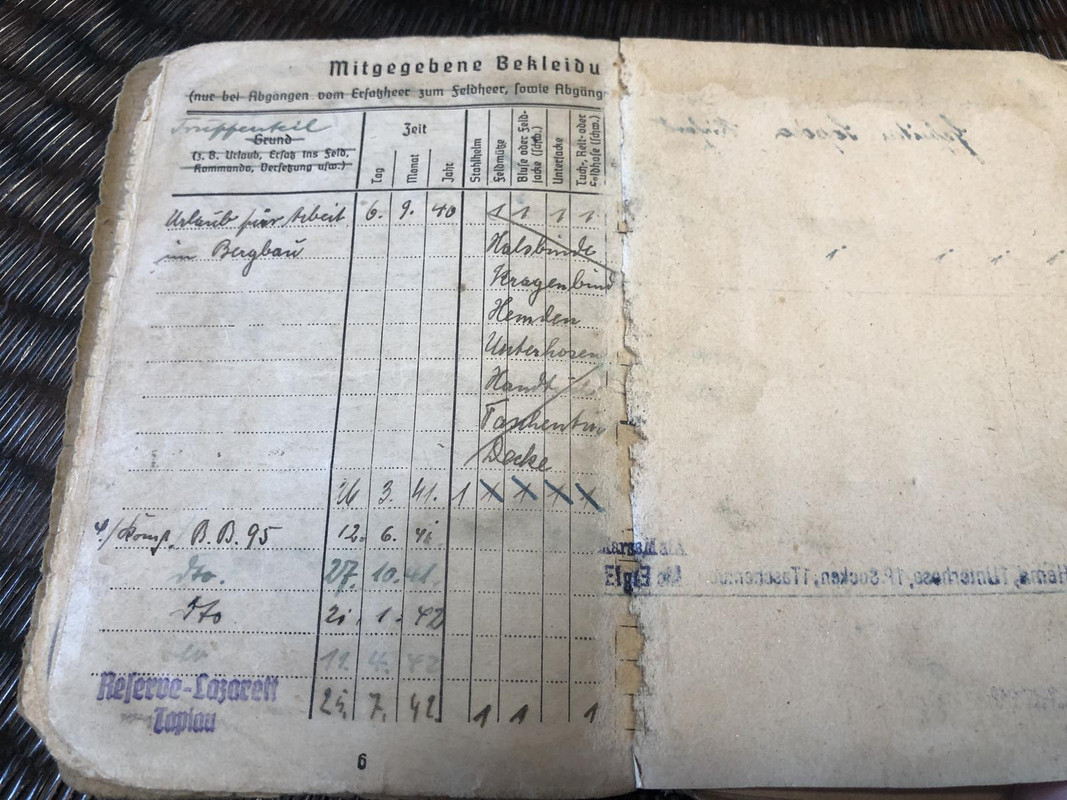 Mitgegebene Bekleidu
(nur bei Abgängen vom Ersatzheer zum Feldheer, sowie Abgäng
Truppenteil
Grund
(z. B. Urlaub, Ersatz ins Feld,
Kommando, Versetzung usw.)
Zeit
Tag
Monat
Jahr
Stahlhelm
Feldmütze
Bluse oder Feld-
jacke (schw.)
Unterjacke
Tuch-, Reit- oder
Feldhose (schw.)
Urlaub für Arbeit 6. 9. 40 1 1 1 1
im Bergbau Halsbinde
Kragenbind
Hemden
Unterhosen
Handt
Taschentu
Decke
26 3. 41. 1 X X X X
4./ Komp. B.B. 95 12. 6. 41
dto. 27. 10. 41.
dto 21. 1. 42
11. 4. 42
Reserve-Lazarett
Tapiau
25. 7. 42 1 1 1
6
Hemd, 1 Unterhose, 1 P. Socken, 1 Taschentu